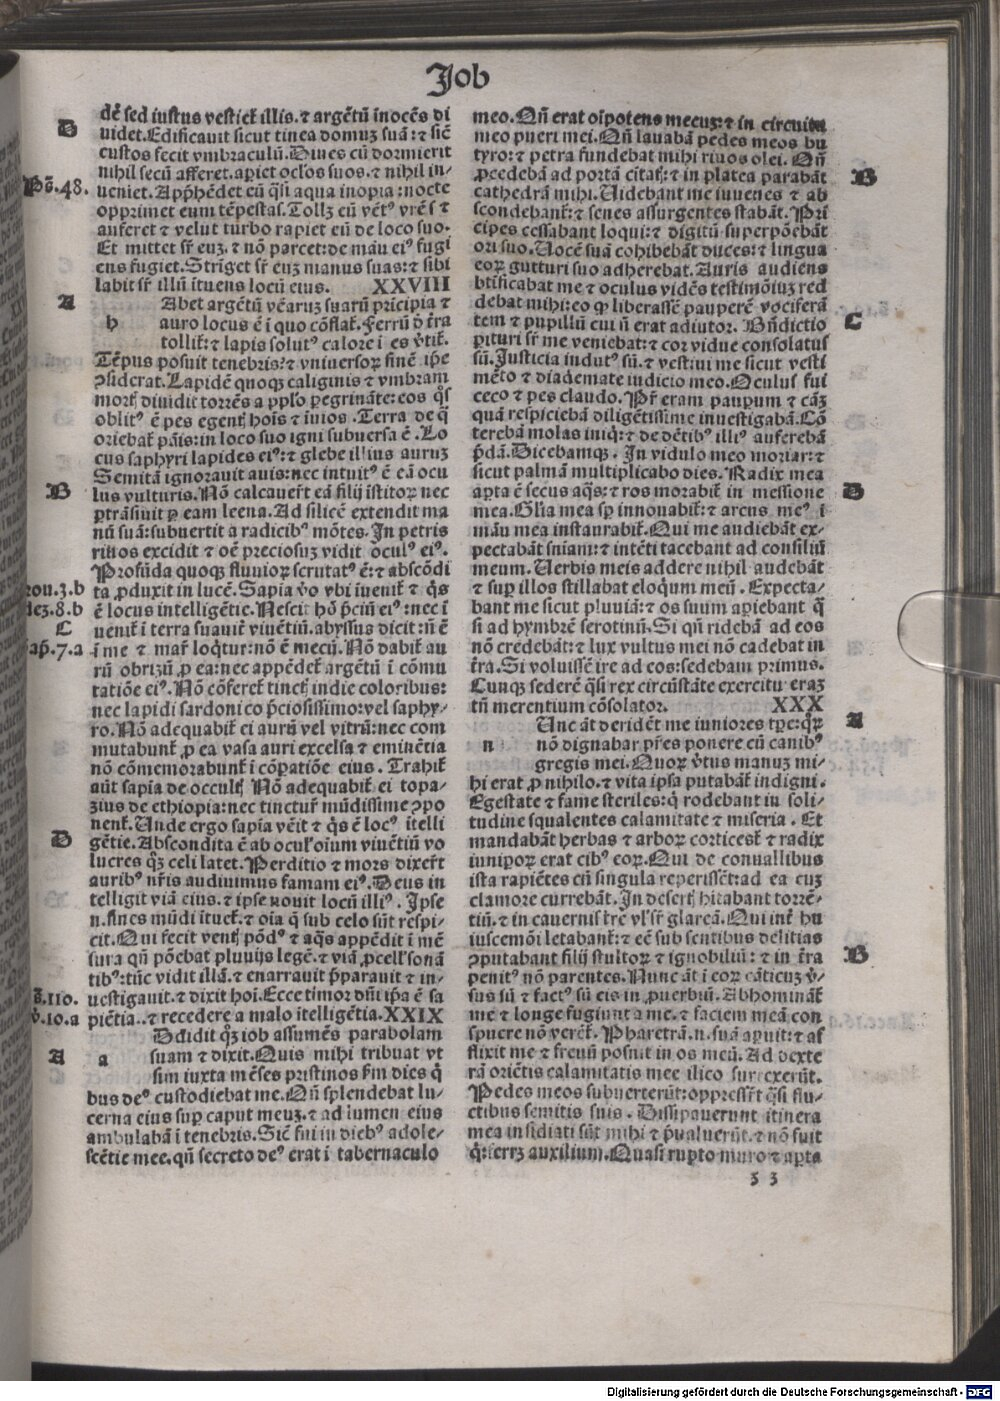 Job
dē sed iustus vestieť illis.⁊ argētū inocēs di
uidet.Edificauit sicut tinea domuʒ suā:⁊ sič
custos fecit vmbraculū.Diues cū dormierit
nihil secū afferet.apiet oclos suos.⁊ nihil in/
ueniet.Appr̄hēdet eū q̄si aqua inopia:nocte
opprimet eum tēpestas.Tollʒ eū vēt⁹ vrēs ⁊
auferet ⁊ velut turbo rapiet eū de loco suo.
Et mittet sr̄ euʒ.⁊ nō parcet:de māu ei⁹ fugi
ens fugiet.Strīget sr̄ euʒ manus suas:⁊ sibi
labit sr̄ illū ītuens locū eius. XXVIII
Abet argētū vēaruʒ suarū pricipia ⁊
auro locus ē ī quo cōflať.Ferrū ď ťra
tolliť:⁊ lapis solut⁹ calore ī es v̄tiť.
Tēpus posuit tenebris:⁊ vniuersoꝝ finē ip̄e
ↄsiderat.Lapidē quoqʒ caliginis ⁊ vmbram
mortꝭ diuidit torrēs a pplo peregrināte:eos q̄s
oblit⁹ ē pes egentꝭ hoīs ⁊ iuios.Terra de q̄
oriebať pāis:in loco suo igni subuersa ē.Lo
cus saphyri lapides ei⁹:⁊ glebe illius auruʒ
Semitā ignorauit auis:nec intuit⁹ ē eā ocu
lus vulturis.Nō calcauerť eā filij īstitoꝝ nec
ptrāsiuit ꝑ eam leena.Ad silicē extendit ma
nū suā:subuertit a radicib⁹ mōtes.In petris
riuos excidit ⁊ oē preciosuʒ vidit ocul⁹ ei⁹.
Profūda quoqʒ fluuioꝝ scrutat⁹ ē:⁊ abscōdi
ta ꝓduxit in lucē.Sapia v̄o vbi īueniť ⁊ q̄s
ē locus intelligētie.Nescit hō p̄ciū ei⁹:nec ī
ueniť ī terra suauiť viuētiū.abyssus dicit:n̄ ē
ī me ⁊ mar̄ loq̄tur:nō ē mecū.Nō dabiť au
rū obrizū ꝓ ea:nec appēdeť argētū ī cōmu
tatiōe ei⁹.Nō cōfereť tinctꝭ indie coloribus:
nec lapidi sardonico p̄ciosissimo:vel saphy/
ro.Nō adequabiť ei aurū vel vitrū:nec com
mutabunť ꝓ ea vasa auri excelsa ⁊ eminētia
nō cōmemorabunť ī cōpatiōe eius.Trahiť
aūt sapia de occultꝭ Nō adequabiť ei topa/
zius de ethiopia:nec tinctur̄ mūdissime ↄpo
nenť.Unde ergo sapia vēit ⁊ q̄s ē loc⁹ itelli
gētie.Abscondita ē ab ocuľ oium viuētiū vo
lucres q̄ʒ celi latet.Perditio ⁊ mors dixerť
aurib⁹ nr̄is audiuimus famam ei⁹.Deus in
telligit viā eius.⁊ ipse nouit locū illi⁹.Ipse
n.fines mūdi ītueť.⁊ oia q̄ sub celo sūt respi/
cit.Qui fecit ventꝭ pōd⁹ ⁊ aq̄s appēdit ī mē
sura qn̄ pōebat pluuijs legē.⁊ viā ꝓcelľ sonā
tib⁹:tūc vidit illā.⁊ enarrauit p̄parauit ⁊ in/
uestigauit.⁊ dixit hoī.Ecce timor dn̄i ip̄a ē sa
piētia.⁊ recedere a malo ītelligētia.XXIX
Ddidit qʒ iob assumēs parabolam
suam ⁊ dixit.Quis mihi tribuat vt
sim iuxta mēses pristinos fm̄ dies q̄
bus de⁹ custodiebat me.Qn̄ splendebat lu/
cerna eius sup caput meuʒ.⁊ ad lumen eius
ambulabā ī tenebris.Sič fui in dieb⁹ adole/
scētie mee.qn̄ secreto de⁹ erat ī tabernaculo
meo.Qn̄ erat oīpotens mecuʒ:⁊ in circuitu
meo pueri mei.Qn̄ lauabā pedes meos bu
tyro:⁊ petra fundebat mihi riuos olei.Qn̄
ꝓcedebā ad portā citatꝭ:⁊ in platea parabāt
cathedrā mihi.Uidebant me iuuenes ⁊ ab
scondebanť:⁊ senes assurgentes stabāt.Pri
cipes cessabant loqui:⁊ digitū superpōebāt
ori suo.Uocē suā cohibebāt duces:⁊ lingua
eoꝝ gutturi suo adherebat.Auris audiens
btificabat me ⁊ oculus vidēs testimōiuʒ red
debat mihi:eo ꝙ liberassē pauperē vociferā
tem ⁊ pupillū cui n̄ erat adiutor.Bn̄dictio
pituri sr̄ me veniebat:⁊ cor vidue consolatus
sū.Justicia indut⁹ sū.⁊ vestiui me sicut vesti
mēto ⁊ diademate iudicio meo.Oculus fui
ceco ⁊ pes claudo.Pr̄ eram pauperum ⁊ cāʒ
quā respiciebā diligētissime inuestigabā.Cō
terebā molas iniq̄:⁊ de dētib⁹ illi⁹ auferebā
p̄dā.Dicebamqʒ.In nidulo meo moriar:⁊
sicut palmā multiplicabo dies.Radix mea
apta ē secus aq̄s:⁊ ros morabiť in messione
mea.Glia mea sp innouabiť:⁊ arcus me⁹ ī
māu mea instaurabiť.Qui me audiebāt ex/
pectabāt sniam:⁊ intēti tacebant ad consiliū
meum.Uerbis meis addere nihil audebāt
⁊ sup illos stillabat eloqūm meū.Expecta/
bant me sicut pluuiā:⁊ os suum apiebant q̄
si ad hymbrē serotinū.Si qn̄ ridebā ad eos
nō credebāt:⁊ lux vultus mei nō cadebat in
ťra.Si voluissē ire ad eos:sedebam primus.
Cunqʒ sederē q̄si rex circūstāte exercitu eraʒ
tn̄ merentium cōsolator. XXX
Unc āt deridēt me iuniores tpe:qꝝ
nō dignabar pr̄es ponere cū canib⁹
gregis mei.Quoꝝ v̄tus manuʒ mi/
hi erat ꝓ nihilo.⁊ vita ipsa putabāť indigni.
Egestate ⁊ fame steriles:q̄ rodebant in soli/
tudine squalentes calamitate ⁊ miseria.Et
mandabāt herbas ⁊ arboꝝ cortices:⁊ radix
iunipoꝝ erat cib⁹ eoꝝ.Qui de conuallibus
ista rapiētes cū singula reperissēt:ad ea cuʒ
clamore currebāt.In desertꝭ hitabant torrē/
tiū.⁊ in cauernis ťre vľ sr̄ glareā.Qui inť hu
iuscemōi letabanť:⁊ eē sub sentibus delitias
ↄputabant filij stultoꝝ ⁊ ignobiliū:⁊ in ťra
penit⁹ nō parentes.Nunc āt ī eoꝝ cāticuʒ v̄/
sus sū ⁊ fact⁹ sū eis in ꝓuerbiū.Abhomināť
me ⁊ longe fugiunt a me.⁊ faciem meā con
spuere nō vereť.Pharetrā.n.suā apuit:⁊ af
flixit me ⁊ frenū posuit in os meū.Ad dexte
rā oriētis calamitatis mee ilico surrexerūt.
Pedes meos subuerterūt:oppresser̄t q̄si flu/
ctibus semitis suis.Dissipauerunt itinera
mea insidiati sūt mihi ⁊ p̄ualuerūt.⁊ nō fuit
q̄ ferrʒ auxilium.Quasi rupto muro ⁊ apta
ʒ 3
D
Ps̄.48.
A
h
B
rou.3.b
lez.8.b
C
ap̄.7.a
D
s̄.110.
v̄.10.a
A
a
B
C
D
A
n
B